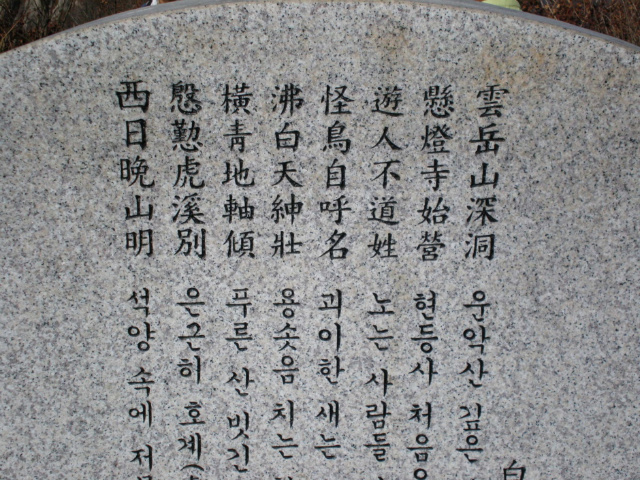 雲岳山深洞 운악산 깊은
懸燈寺始營 현등사 처음
遊人不道姓 노는 사람들
怪鳥自呼名 괴이한 새는
沸白天紳壯 용솟음 치는
橫靑地軸傾 푸른 산 빗긴
慇懃虎溪別 은근히 호계(
西日晩山明 석양 속에